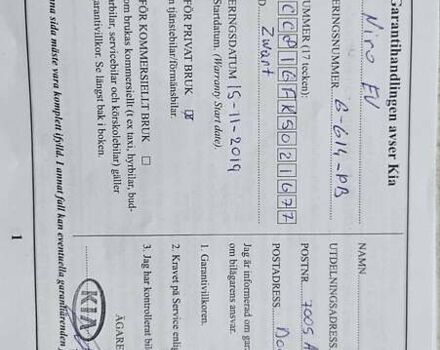 Garantihandlingen avser Kia
Niro EV
ERINGSNUMMER G-614-PB
UMMER (17 tecken):
CC816FK5021677
D Zwart
ERINGSDATUM 15-11-2019
Startdatum. (Warranty Start date)
FÖR PRIVAT BRUK ☒
n tjänstebilar/förmånsbilar.
FÖR KOMMERSIELLT BRUK ☐
om brukas kommersiellt (t ex taxi, hyrbilar, bud-
arbilar, servicebilar och körskolebilar) gäller
arantivillkor. Se längst bak i boken.
nna sida måste vara komplett ifylld. I annat fall kan eventuella garantiärenden
NAMN
UTDELNINGSADRESS
POSTNR 7005 A
POSTADRESS Do
Jag är informerad om gar
om bilägarens ansvar.
1. Garantivillkoren.
2. Kravet på Service enlig
3. Jag har kontrollerat bil
ÄGARE
KIA
1